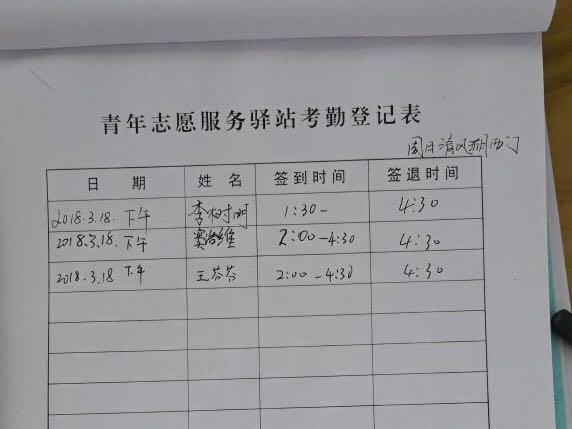 青年志愿服务驿站考勤登记表
周日清风湖西门
日 期 姓 名 签到时间 签退时间
2018.3.18. 下午 李树 1:30- 4:30
2018.3.18. 下午 维 2:00-4:30 4:30
2018.3.18 下午 王芬芬 2:00-4:30 4:30